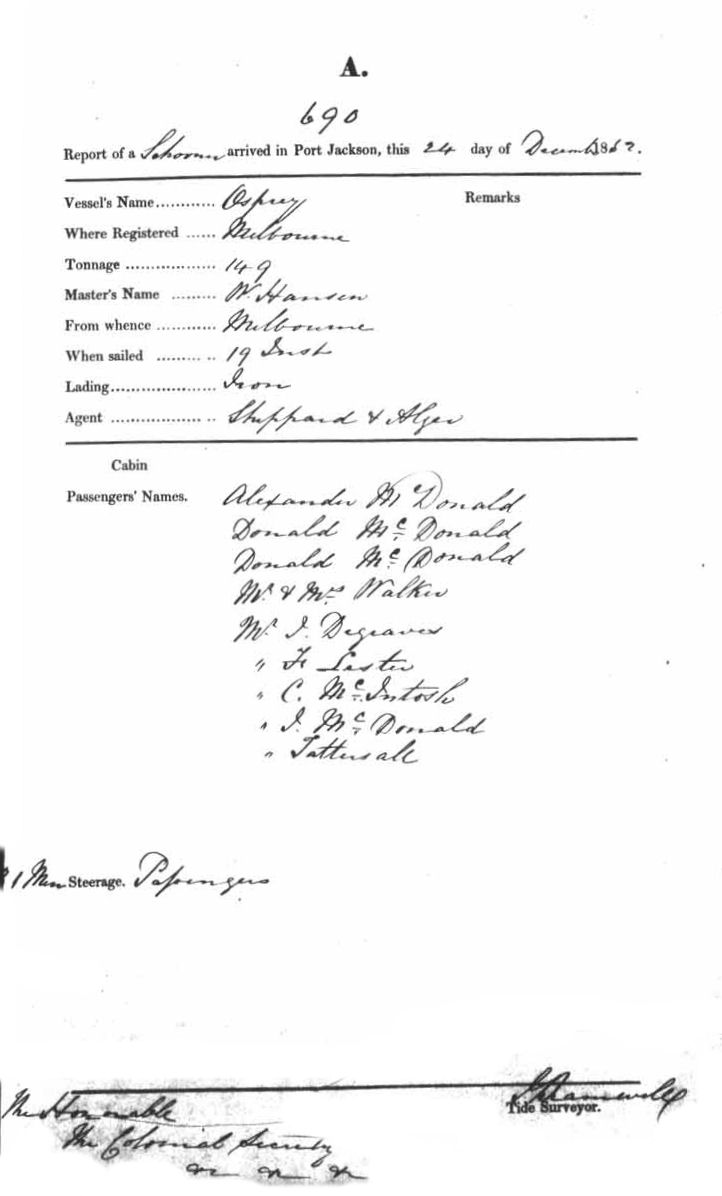 A.
690
Report of a Schooner arrived in Port Jackson, this 24 day of December 186
Vessel's Name............ Osprey Remarks
Where Registered ...... Melbourne
Tonnage .................. 149
Master's Name ......... W. Hansen
From whence ............ Melbourne
When sailed ......... .. 19 Inst
Lading..................... Iron
Agent ................. .. Sheppard & Alger
Cabin
Passengers' Names. Alexander McDonald
Donald Mc Donald
Donald Mc Donald
Mr & Mrs Walker
Mr J. Degraves
" F Lester
" C. McIntosh
" J. Mc Donald
" Tattersall
Men Steerage. Passengers
Tide Surveyor.
The Honorable
The Colonial Secrety